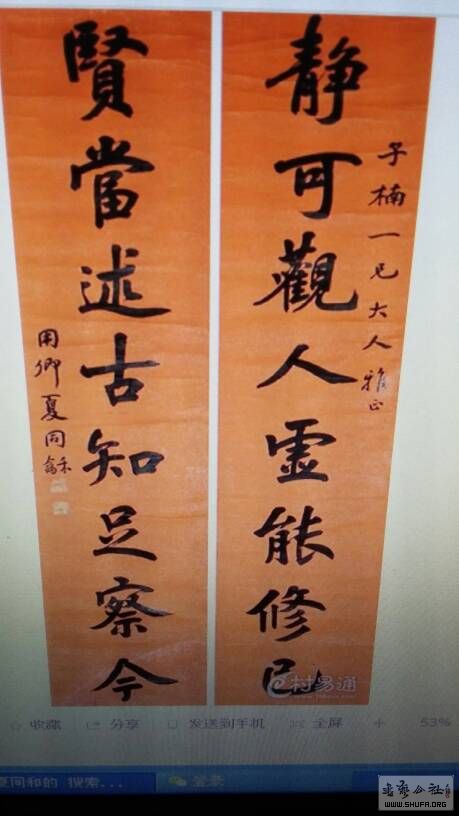 子楠一兄大人雅正
静可觀人虚能修己
賢當述古知足察今
用卿夏同龢
村易通
收藏 分享 发送到手机 全屏 + 53%
夏同和的 搜索... 登录
WWW.SHUFA.ORG